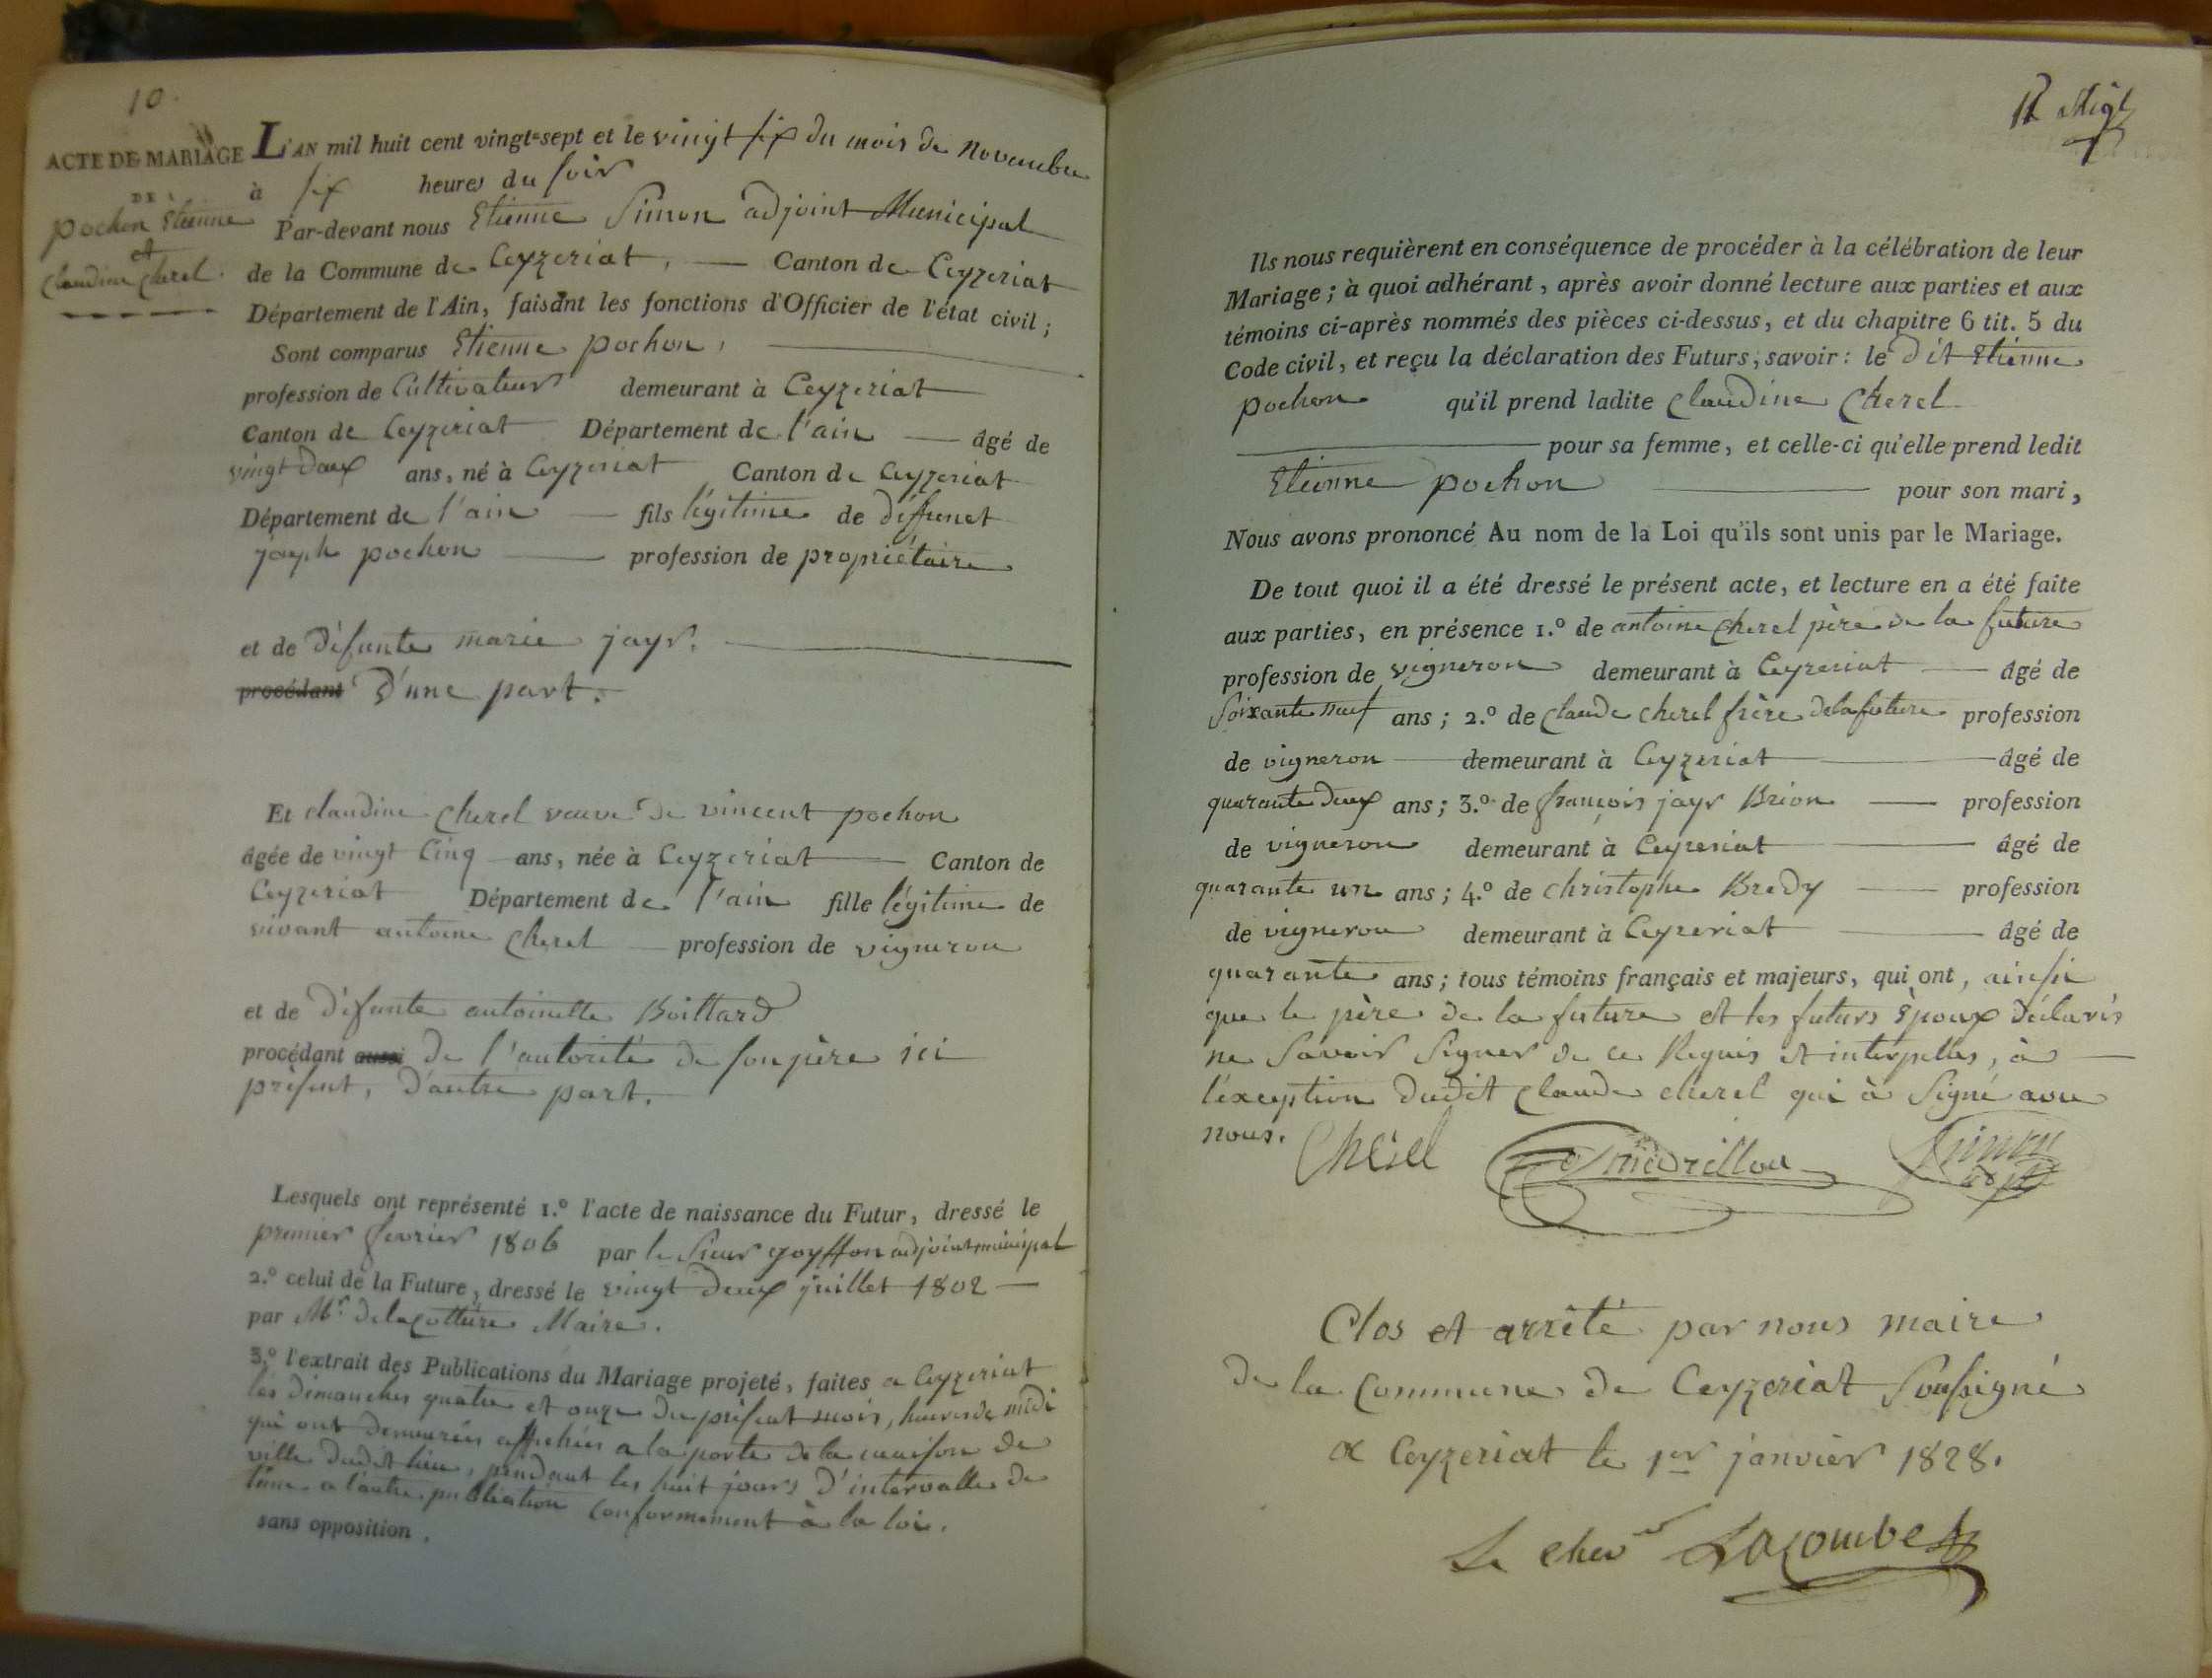 10.
ACTE DE MARIAGE
DE
Pochon Etienne
et
Claudine Cherel.
L'AN mil huit cent vingt-sept et le vingt six du mois de Novembre
à six heures du soir
Par-devant nous Etienne Simon adjoint Municipal
de la Commune de Ceyzeriat, Canton de Ceyzeriat
Département de l'Ain, faisant les fonctions d'Officier de l'état civil;
Sont comparus Etienne pochon,
profession de Cultivateur demeurant à Ceyzeriat
Canton de Ceyzeriat Département de l'ain âgé de
vingt deux ans, né à Ceyzeriat Canton de Ceyzeriat
Département de l'ain fils légitime de deffunct
joseph pochon profession de propriétaire
et de défunte marie jayr.
procédant d'une part.
Et claudine Cherel veuve de vincent pochon
âgée de vingt Cinq ans, née à Ceyzeriat Canton de
Ceyzeriat Département de l'ain fille légitime de
vivant antoine Cherel profession de vigneron
et de défunte antoinette Boittard
procédant aussi de l'autorité de son père ici
présent, d'autre part.
Lesquels ont représenté 1.º l'acte de naissance du Futur, dressé le
premier fevrier 1806 par le Sieur goyffon adjoint municipal
2.º celui de la Future, dressé le vingt deux juillet 1802
par Mr. delacotture Maire.
3.º l'extrait des Publications du Mariage projeté, faites a Ceyzeriat
les dimanches quatre et onze du présent mois, heures de midi
qui ont demeurées affichées a la porte de la maison de
ville dudit lieu, pendant les huit jours d'intervalle de
l'une a l'autre publication conformement à la loi.
sans opposition.
Ils nous requièrent en conséquence de procéder à la célébration de leur
Mariage; à quoi adhérant, après avoir donné lecture aux parties et aux
témoins ci-après nommés des pièces ci-dessus, et du chapitre 6 tit. 5 du
Code civil, et reçu la déclaration des Futurs, savoir: le dit Etienne
pochon qu'il prend ladite Claudine Cherel
pour sa femme, et celle-ci qu'elle prend ledit
Etienne pochon pour son mari,
Nous avons prononcé Au nom de la Loi qu'ils sont unis par le Mariage.
De tout quoi il a été dressé le présent acte, et lecture en a été faite
aux parties, en présence 1.º de antoine Cherel père de la future
profession de vigneron demeurant à Ceyzeriat âgé de
soixante neuf ans; 2.º de Claude cherel frère de la future profession
de vigneron demeurant à Ceyzeriat âgé de
quarante deux ans; 3.º de françois jayr Brion profession
de vigneron demeurant à Ceyzeriat âgé de
quarante un ans; 4.º de christophe Bredy profession
de vigneron demeurant à Ceyzeriat âgé de
quarante ans; tous témoins français et majeurs, qui ont, ainsi
que le père de la future et les futurs époux déclarés
ne Savoir Signer de ce Requis et interpellés, à
l'exception dudit Claude cherel qui à Signé avec
nous. Cherel Simon
Clos et arrêté par nous maire
de la Commune de Ceyzeriat Soussigné
a Ceyzeriat le 1er janvier 1828.
Le chev Lacombe